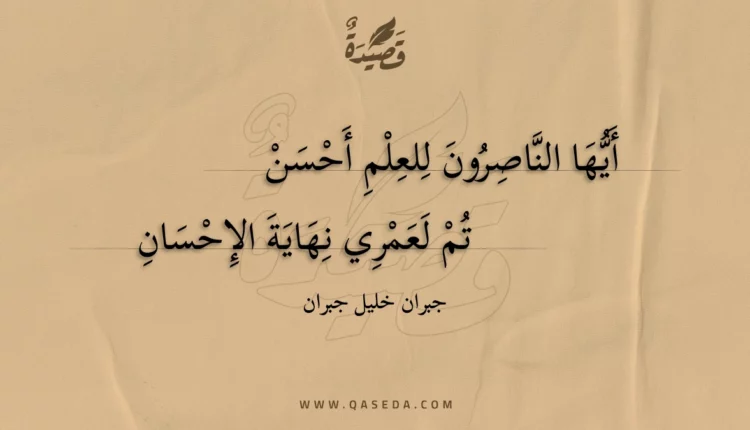 قَصِيدَةٌ
أَيُّهَا النَّاصِرُونَ لِلعِلْمِ أَحْسَنْ
تُمْ لَعَمْرِي نِهَايَةَ الإِحْسَانِ
جبران خليل جبران
WWW.QASEDA.COM